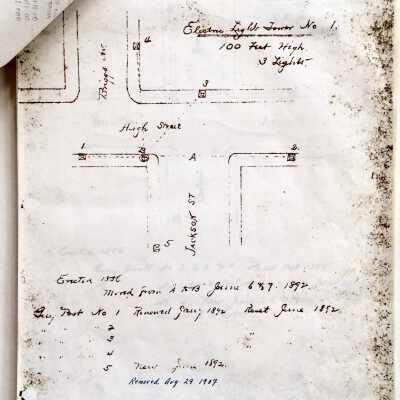 Electric Light Tower No 1.
100 Feet High.
3 Lights.
4
Briggs Ave
3
High Street
1
B
A
2
JACKSON ST
5
Erected 1886
Moved from A to B June 6 & 7. 1892.
Guy Post No 1 Renewed Jany 1892 Reset June 1892.
2 "
3
4 "
5 New June 1892.
Removed Aug 29 1907